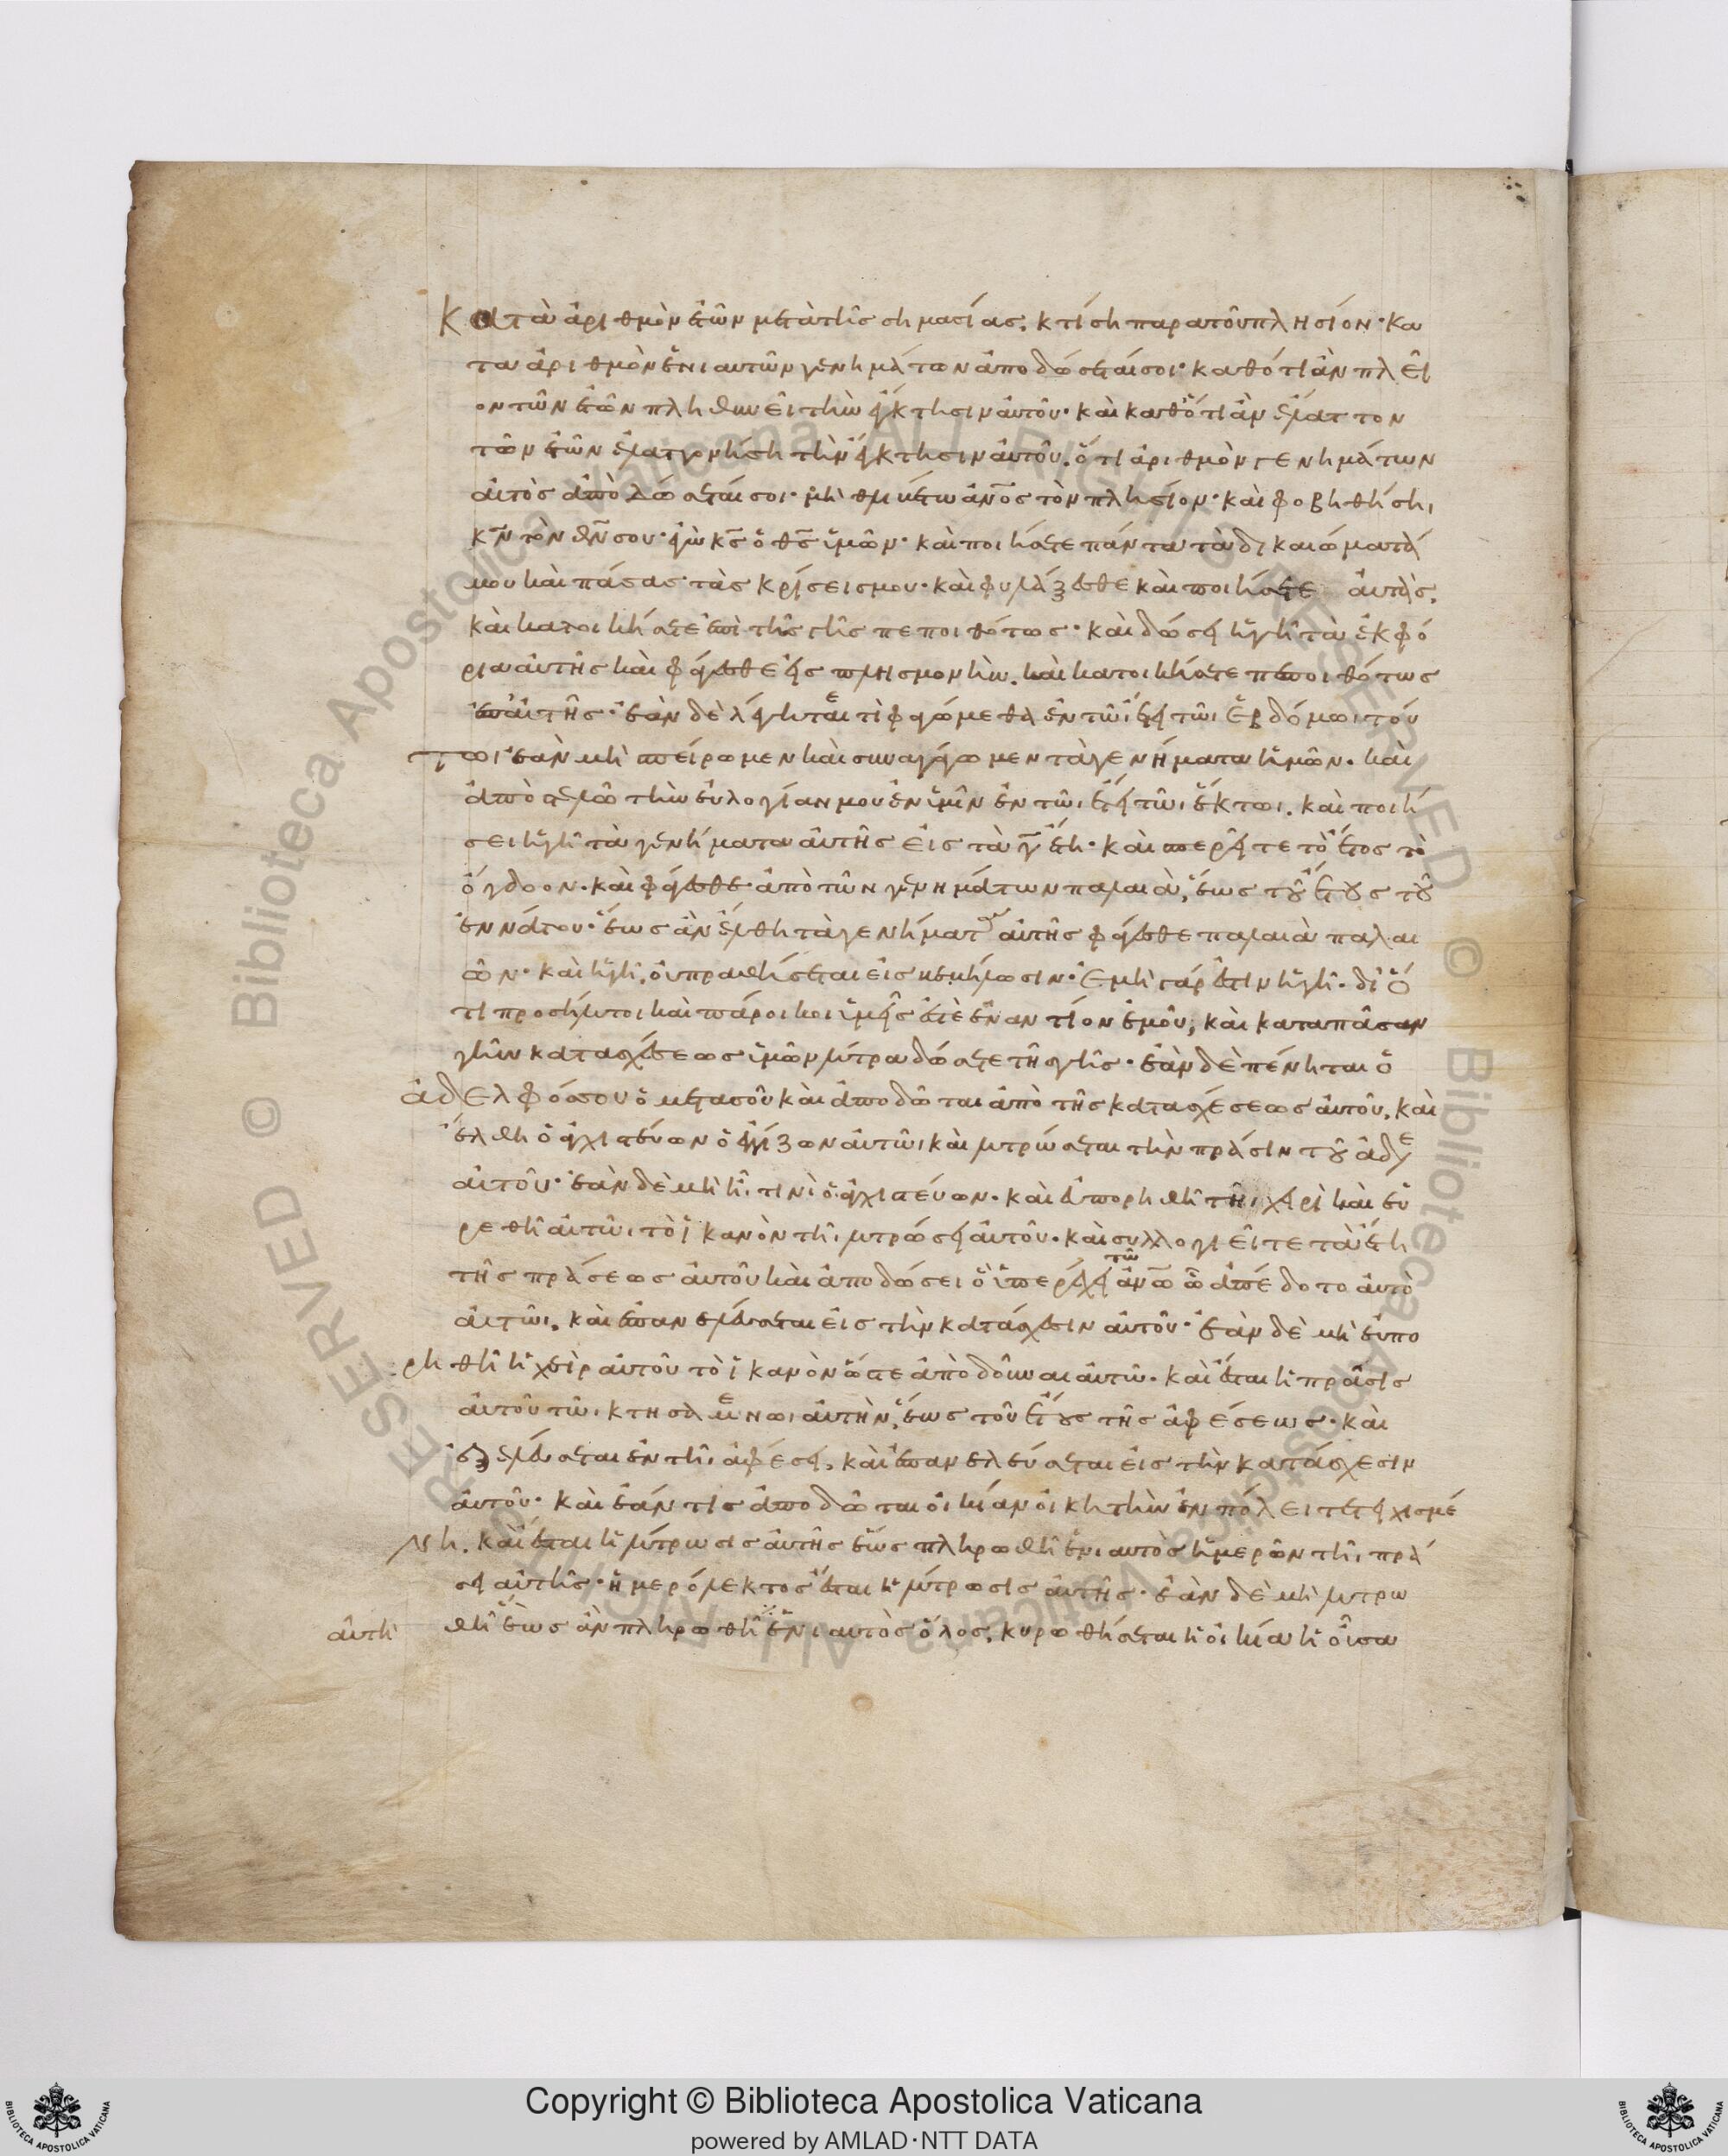 Κατὰ ἀριθμὸν ἐτῶν μετὰ τῆς σημασίας. κτήση παρὰ τοῦ πλησίον· κα
τα ἀριθμὸν ἐνιαυτῶν γενημάτων ἀποδώσεταί σοι· καθότι ἂν πλεῖ
ον τῶν ἐτῶν πληθυνεῖ τὴν ἔκτησιν αὐτοῦ· καὶ καθότι ἂν ἔλαττον
τῶν ἐτῶν ἐλαττονήση τὴν ἔκτησιν αὐτοῦ. ὅτι ἀριθμὸν γενημάτων
αὐτὸς ἀποδώσεταί σοι· μὴ θλιβέτω ἄνος τὸν πλησίον· καὶ φοβηθήση,
κν τὸν θν σου· ἐγὼ κς ὁ θς ὑμῶν· καὶ ποιήσετε πάντα τὰ δικαιώματά
μου καὶ πάσας τὰς κρίσεις μου· καὶ φυλάξεσθε καὶ ποιήσετε αὐτάς.
καὶ κατοικήσετε ἐπὶ τῆς γῆς πεποιθότως· καὶ δώσει ἡ γῆ τὰ ἐκφό
ρια αὐτῆς καὶ φάγεσθε εἰς πλησμονήν. καὶ κατοικήσετε πεποιθότως
ἐπ' αὐτῆς· ἐὰν δὲ λέγητε τί φαγώμεθα ἐν τῶι ἔτει τῶι ἑβδόμωι τού
τωι ἐὰν μὴ σπείρωμεν καὶ συναγάγωμεν τὰ γενήματα ἡμῶν. καὶ
ἀποστελῶ τὴν εὐλογίαν μου ἐν ὑμῖν ἐν τῶι ἔτει τῶι ἕκτωι. καὶ ποιή
σει ἡ γῆ τὰ γενήματα αὐτῆς εἰς τὰ γ ἔτη· καὶ σπερεῖτε τὸ ἔτος τὸ
ὄγδοον. καὶ φάγεσθε ἀπὸ τῶν γενημάτων παλαιὰ, ἕως τοῦ ἔτους τοῦ
ἐννάτου· ἕως ἂν ἔλθη τὰ γενήματα αὐτῆς φάγεσθε παλαιὰ παλαι
ῶν· καὶ ἡ γῆ, οὐ πραθήσεται εἰς βεβήλωσιν· ἐμὴ γάρ ἐστιν ἡ γῆ. διό
τι προσήλυτοι καὶ πάροικοι ὑμεῖς ἐστὲ ἐναντίον ἐμοῦ, καὶ κατα πᾶσαν
γῆν κατασχέσεως ὑμῶν λύτρα δώσετε τῆς γῆς· ἐὰν δὲ πένηται ὁ
ἀδελφός σου ὁ μετὰ σοῦ καὶ ἀποδῶται ἀπὸ τῆς κατασχέσεως αὐτοῦ, καὶ
ἔλθη ὁ ἀγχιστεύων ὁ ἐγγίζων αὐτῶι καὶ λυτρώσεται τὴν πρᾶσιν τοῦ ἀδελ
αὐτοῦ· ἐὰν δὲ μὴ ἦι τινὶ ὁ ἀγχιστεύων. καὶ εὐπορηθῆ τῆι χειρὶ καὶ εὑ
ρεθῆ αὐτῶι τὸ ἱκανὸν τῆι λυτρώσει αὐτοῦ. καὶ συλλογιεῖτε τὰ ἔτη
τῆς πράσεως αὐτοῦ καὶ ἀποδώσει ὃ ὑπερέχει τῶ ἀνω ὧ ἀπέδοτο αὐτὸ
αὐτῶι, καὶ ἐπανελεύσεται εἰς τὴν κατάσχεσιν αὐτοῦ· ἐὰν δὲ μὴ εὐπο
ρηθῆ ἡ χεὶρ αὐτοῦ τὸ ἱκανὸν ὥστε ἀποδοῦναι αὐτῶ· καὶ ἔσται ἡ πρᾶσις
αὐτοῦ τῶι κτησαμένωι αὐτὴν, ἕως τοῦ ἔτους τῆς ἀφέσεως· καὶ
ἐξελεύσεται ἐν τῆι ἀφέσει, καὶ ἐπανελεύσεται εἰς τὴν κατάσχεσιν
αὐτοῦ· καὶ ἐάν τις ἀποδῶται οἰκίαν οἰκητὴν ἐν πόλει τετειχισμέ
νη. καὶ ἔσται ἡ λύτρωσις αὐτῆς ἕως πληρωθῆ ἐνιαυτὸς ἡμερῶν τῆι πρά
σει αὐτῆς· ἡμερόλεκτος ἔσται ἡ λύτρωσις αὐτῆς· ἐὰν δὲ μὴ λυτρω
αὐτὴ θῆ ἕως ἂν πληρωθῆ ἐνιαυτὸς ὅλος, κυρωθήσεται ἡ οἰκία ἡ οὖσα
Copyright © Biblioteca Apostolica Vaticana
powered by AMLAD·NTT DATA